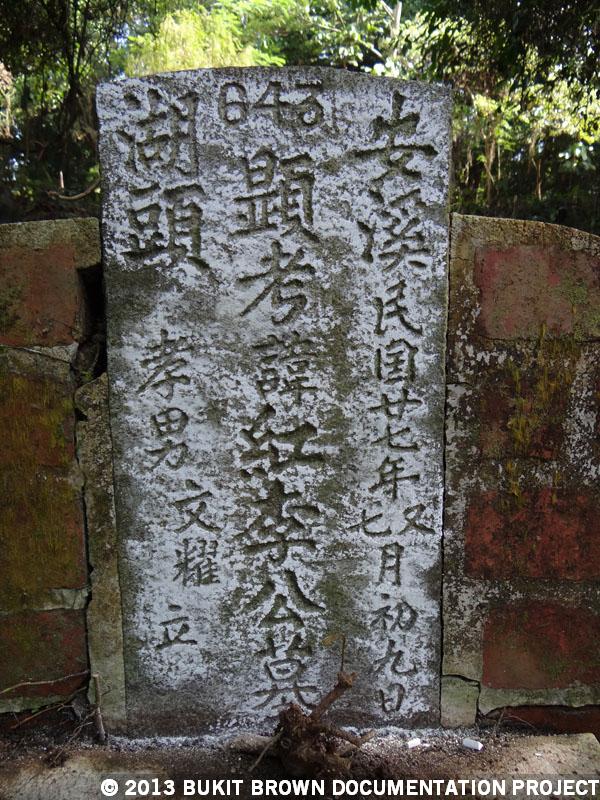 643
安溪
民国廿七年又七月初九日
顕考諱紅李公墓
湖頭
孝男文耀立
© 2013 BUKIT BROWN DOCUMENTATION PROJECT